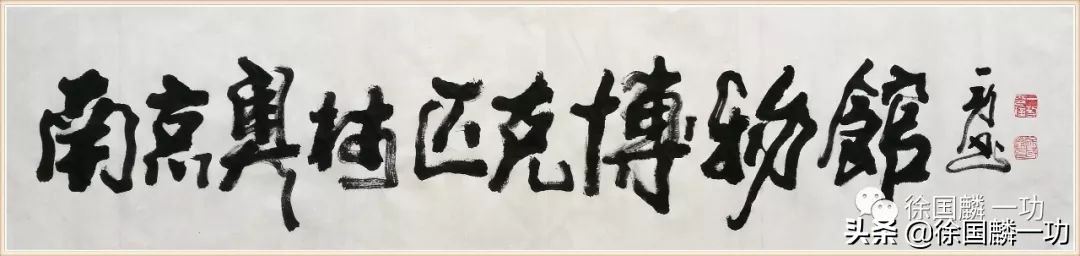 南京奥林匹克博物館
徐国麟一功
头条 @徐国麟一功